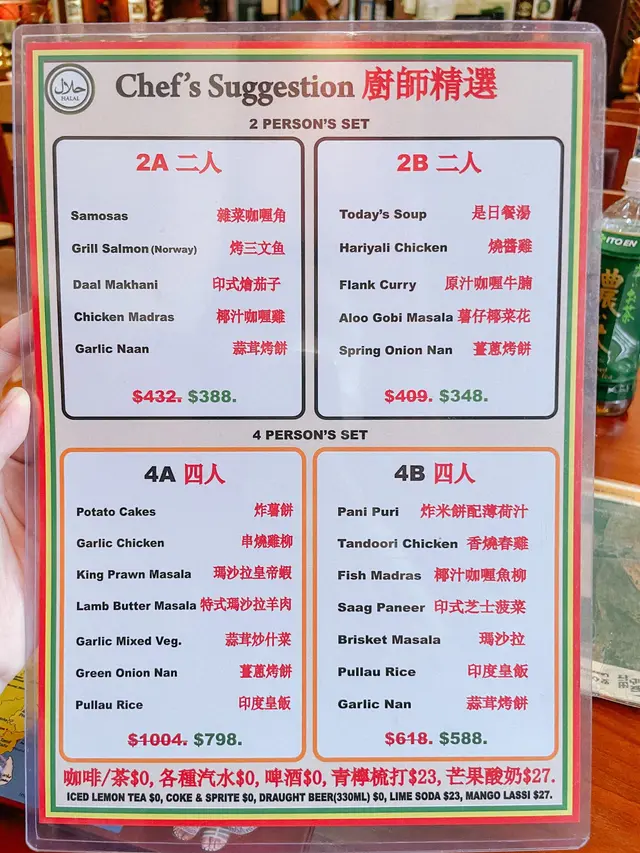 حلال
HALAL
Chef's Suggestion 廚師精選
2 PERSON'S SET
2A 二人
Samosas 雜菜咖喱角
Grill Salmon (Norway) 烤三文鱼
Daal Makhani 印式燴茄子
Chicken Madras 椰汁咖喱雞
Garlic Naan 蒜茸烤餅
$432. $388.
2B 二人
Today's Soup 是日餐湯
Hariyali Chicken 燒醬雞
Flank Curry 原汁咖喱牛腩
Aloo Gobi Masala 薯仔椰菜花
Spring Onion Nan 薑蔥烤餅
$409. $348.
4 PERSON'S SET
4A 四人
Potato Cakes 炸薯餅
Garlic Chicken 串燒雞柳
King Prawn Masala 瑪沙拉皇帝蝦
Lamb Butter Masala 特式瑪沙拉羊肉
Garlic Mixed Veg. 蒜茸炒什菜
Green Onion Nan 薑蔥烤餅
Pullau Rice 印度皇飯
$1004. $798.
4B 四人
Pani Puri 炸米餅配薄荷汁
Tandoori Chicken 香燒春雞
Fish Madras 椰汁咖喱魚柳
Saag Paneer 印式芝士菠菜
Brisket Masala 瑪沙拉
Pullau Rice 印度皇飯
Garlic Nan 蒜茸烤餅
$618. $588.
咖啡/茶$0, 各種汽水$0, 啤酒$0, 青檸梳打$23, 芒果酸奶$27.
ICED LEMON TEA $0, COKE & SPRITE $0, DRAUGHT BEER(330ML) $0, LIME SODA $23, MANGO LASSI $27.
ITO EN